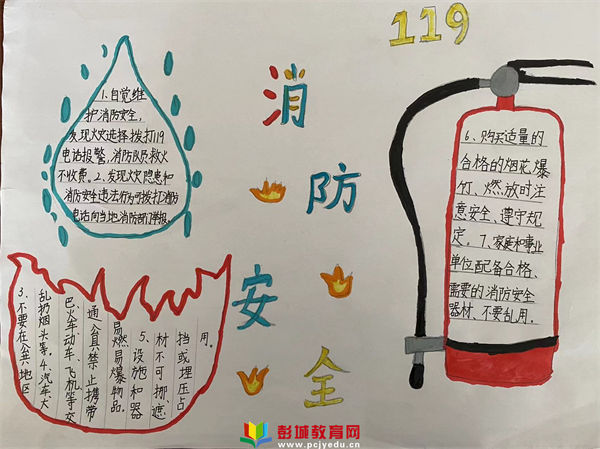 119
消
防
安
全
1、自觉维
护消防安全,
发现火灾选择拨打119
电话报警,消防队员救火
不收费。2、发现火灾隐患和
消防安全违法行为可拨打消防
电话向当地消防部门举报。
3、不要在公共地区
乱扔烟头等。4、汽车大
巴火车动车、飞机等交
通工具禁止携带
易燃易爆物品。
5、设施和器
材不可挪遮
挡或埋压占
用。
6、购买适量的
合格的烟花、爆
竹、燃放时注
意安全、遵守规
定。7、家庭和事业
单位配备合格、
需要的消防安全
器材、不要乱用。
彭城教育网
www.pcjyedu.cn